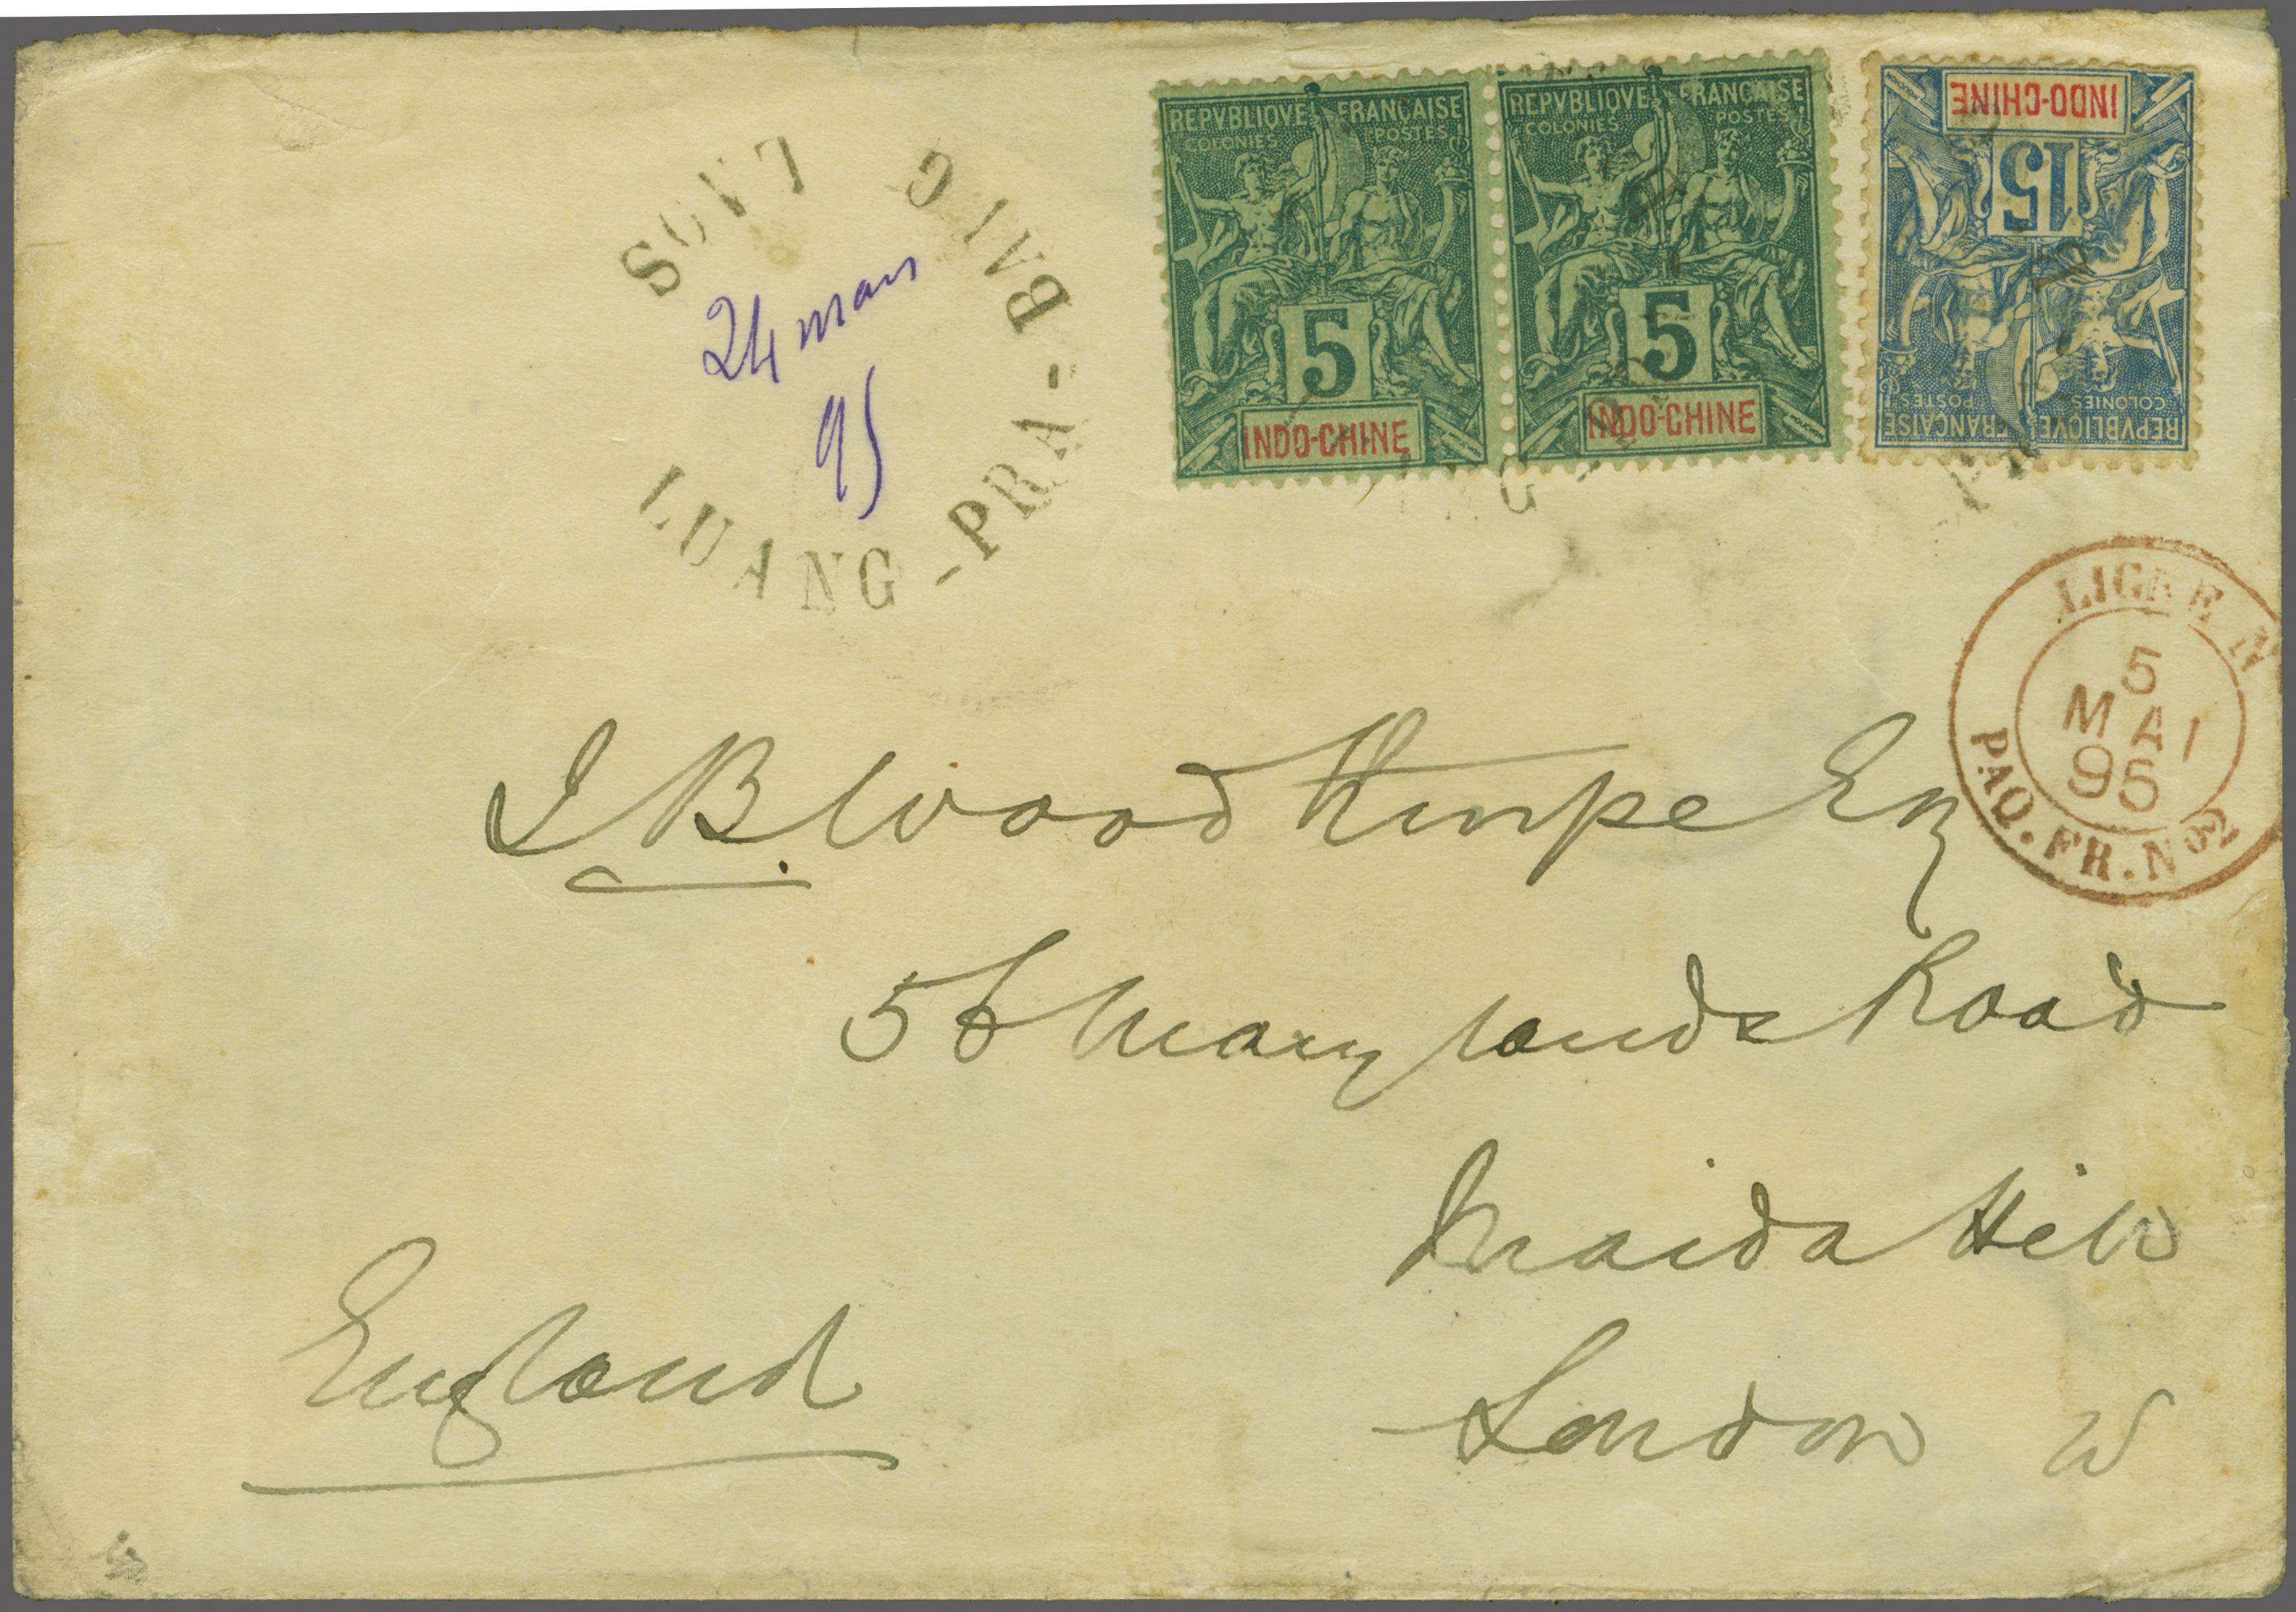 REPVBLIQVE FRANÇAISE
COLONIES POSTES
5
INDO-CHINE
REPVBLIQVE FRANÇAISE
COLONIES POSTES
5
INDO-CHINE
REPVBLIQVE FRANÇAISE
COLONIES POSTES
15
INDO-CHINE
LUANG-PRA-BANG
LAOS
24 mars
95
LIGNE N
5
MAI
95
PAQ. FR. Nº2
J B Woodthorpe Esq
56 Marylands Road
Maida Hill
London W
England